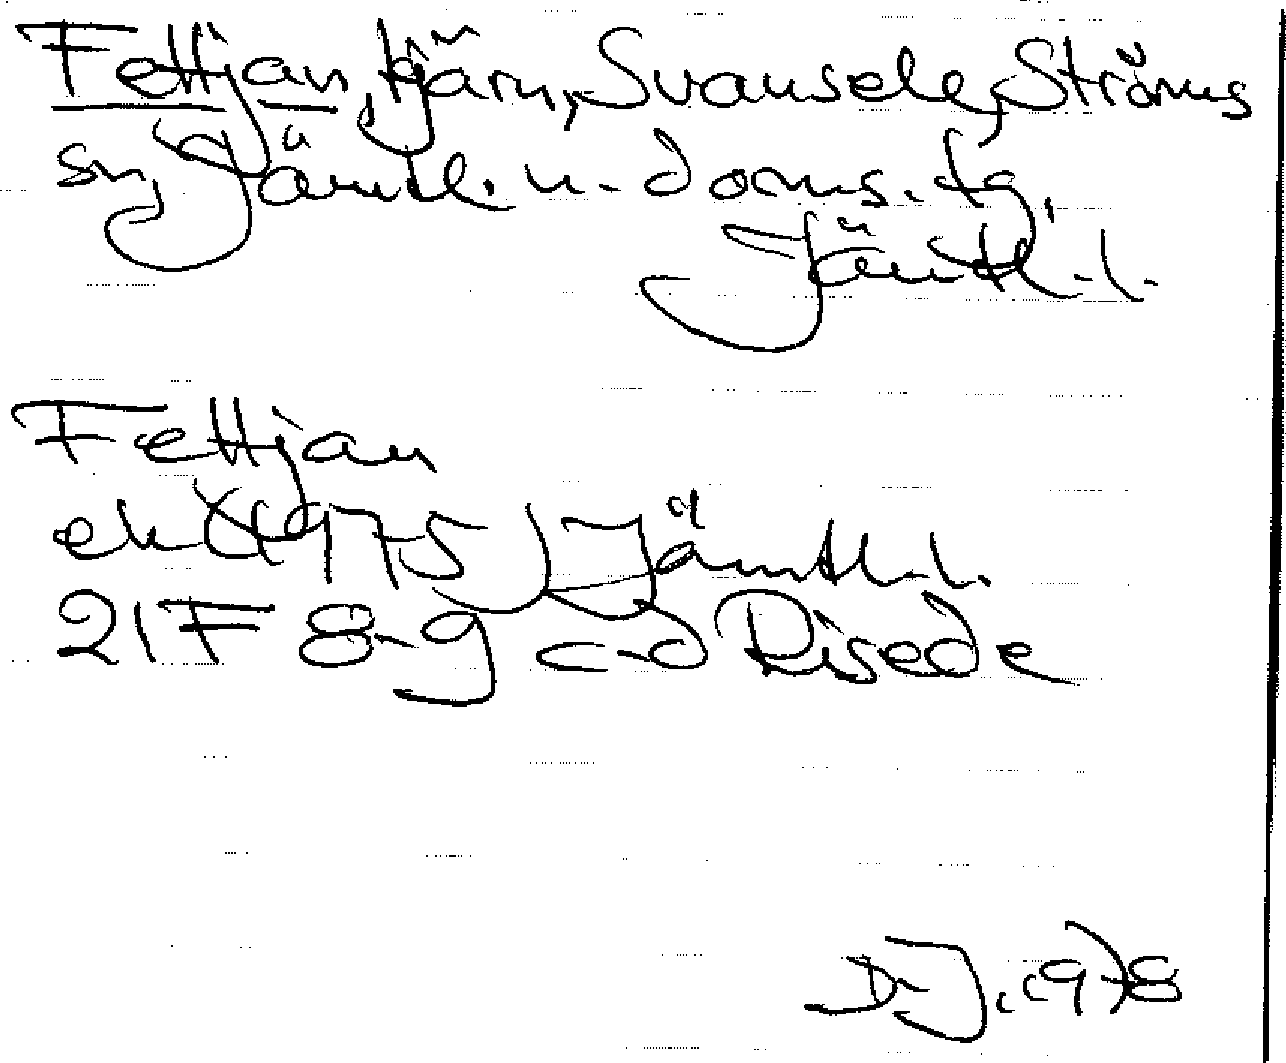 Fettjan, tjärn, Svansele, Ströms
sn, Jämtl. n. doms. tg,
Jämtl. l.
Fettjan
ek (1975) Jämtl. l.
21F 8-g c-d Risede
D.J. 1978